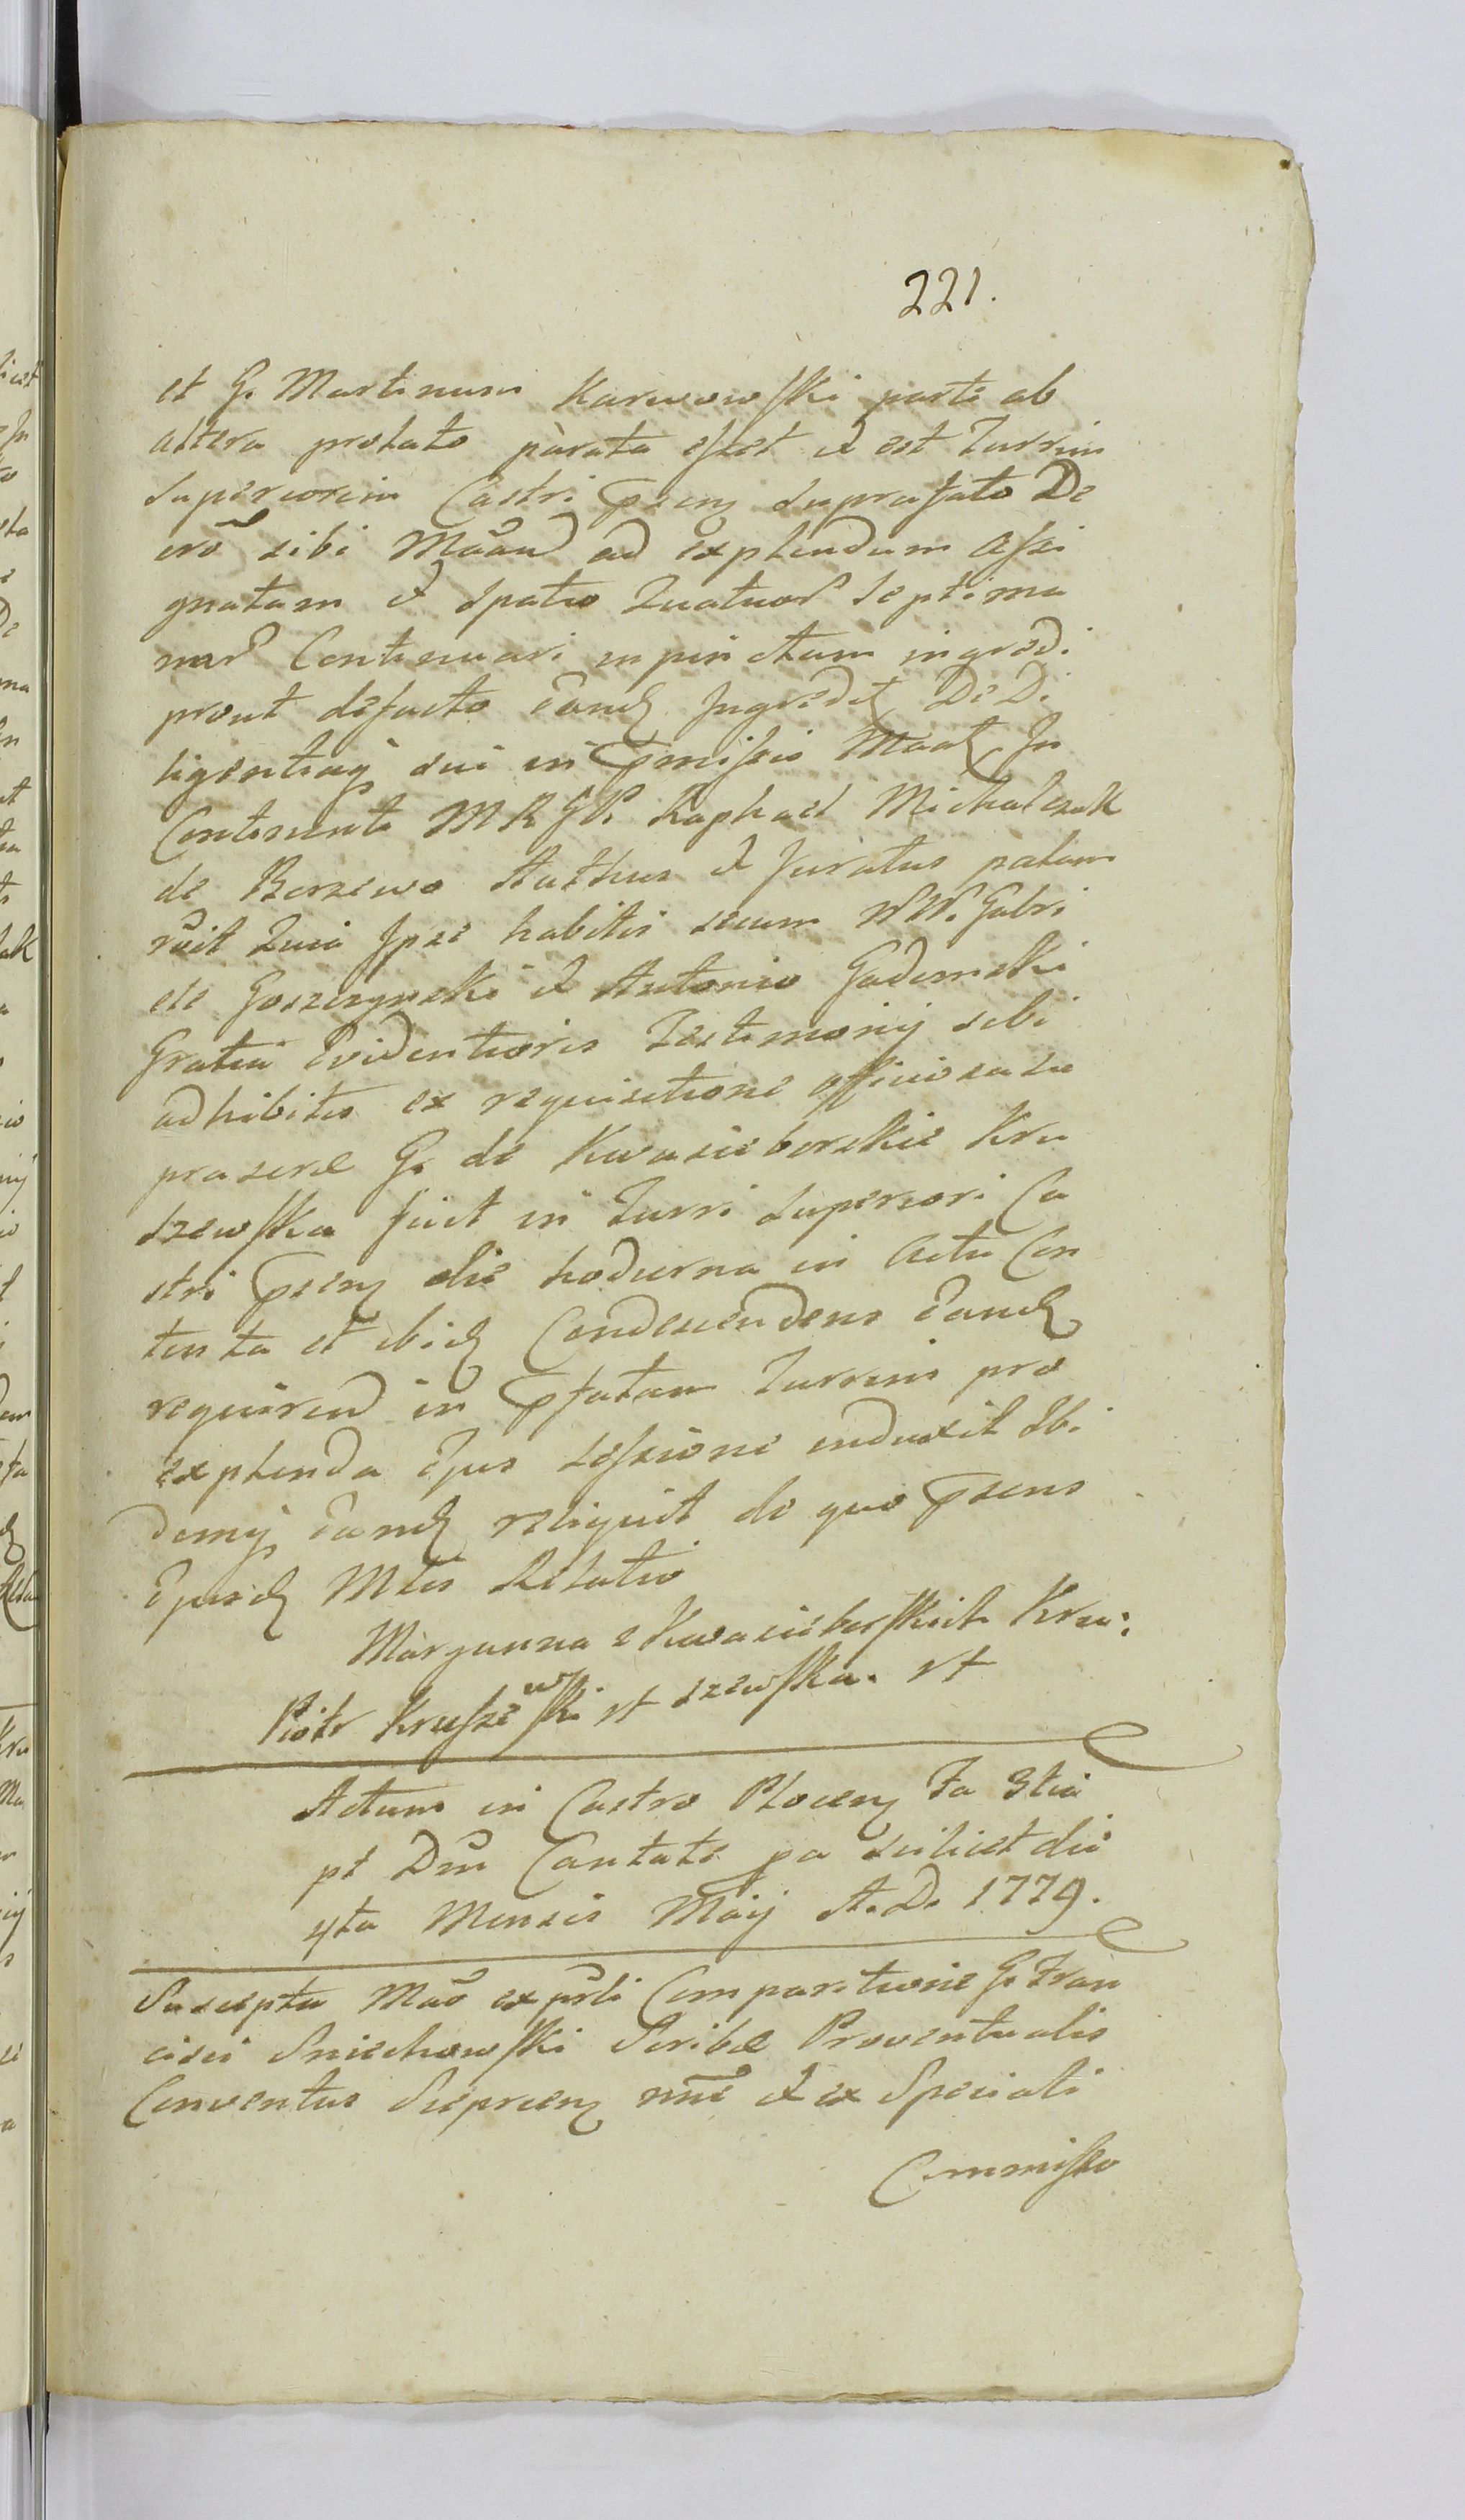 221.
et G. Martinum Karwowski parte ab
altera prolato parata esset et est Turrim
Superiorem Castri psen suprafato De
cro sibi Maand ad explendum assi
gnatam et spatio Quatuor Septima
nar Continuari in punctum ingredi
prout defacto eand Ingredit De Di
ligentiaq sui in pmissis Maat In
Continenti M R G R. Raphael Michalczak
de Borzewo Authus et Juratus palam
rcuit Quia Ipse habitis secum NN. Gabri
ele Goszczynski et Antonio Gadomski
Gratia Evidentioris Testimonij sibi
adhibitis ex requisitione officiosa su
praserae G. de Kwasieborskie Kru
szewska fuit in Turri Superiori Ca
stri psen die hodierna in Actu Con
tenta et ibid Condescendens Eand
requirend in pfatam Turrim pro
explenda Ejus Sessione induxit Ibi
demq eand reliquit de quo psens
Ejusd Mlis Relatio
Maryanna z Kwasieborskich Kru:
Piotr Kruszewski rt szewska. rt
Actum in Castro Plocen Fa 3tia
pt Dm Cantate pa scilicet die
4ta Mensis Maij A. D. 1779.
Suscepta Mao ex psli Comparitione G. Fran
cisci Sniechowski Scribae Proventualis
Conventus Sieprcen nne et ex Speciali
Commisso